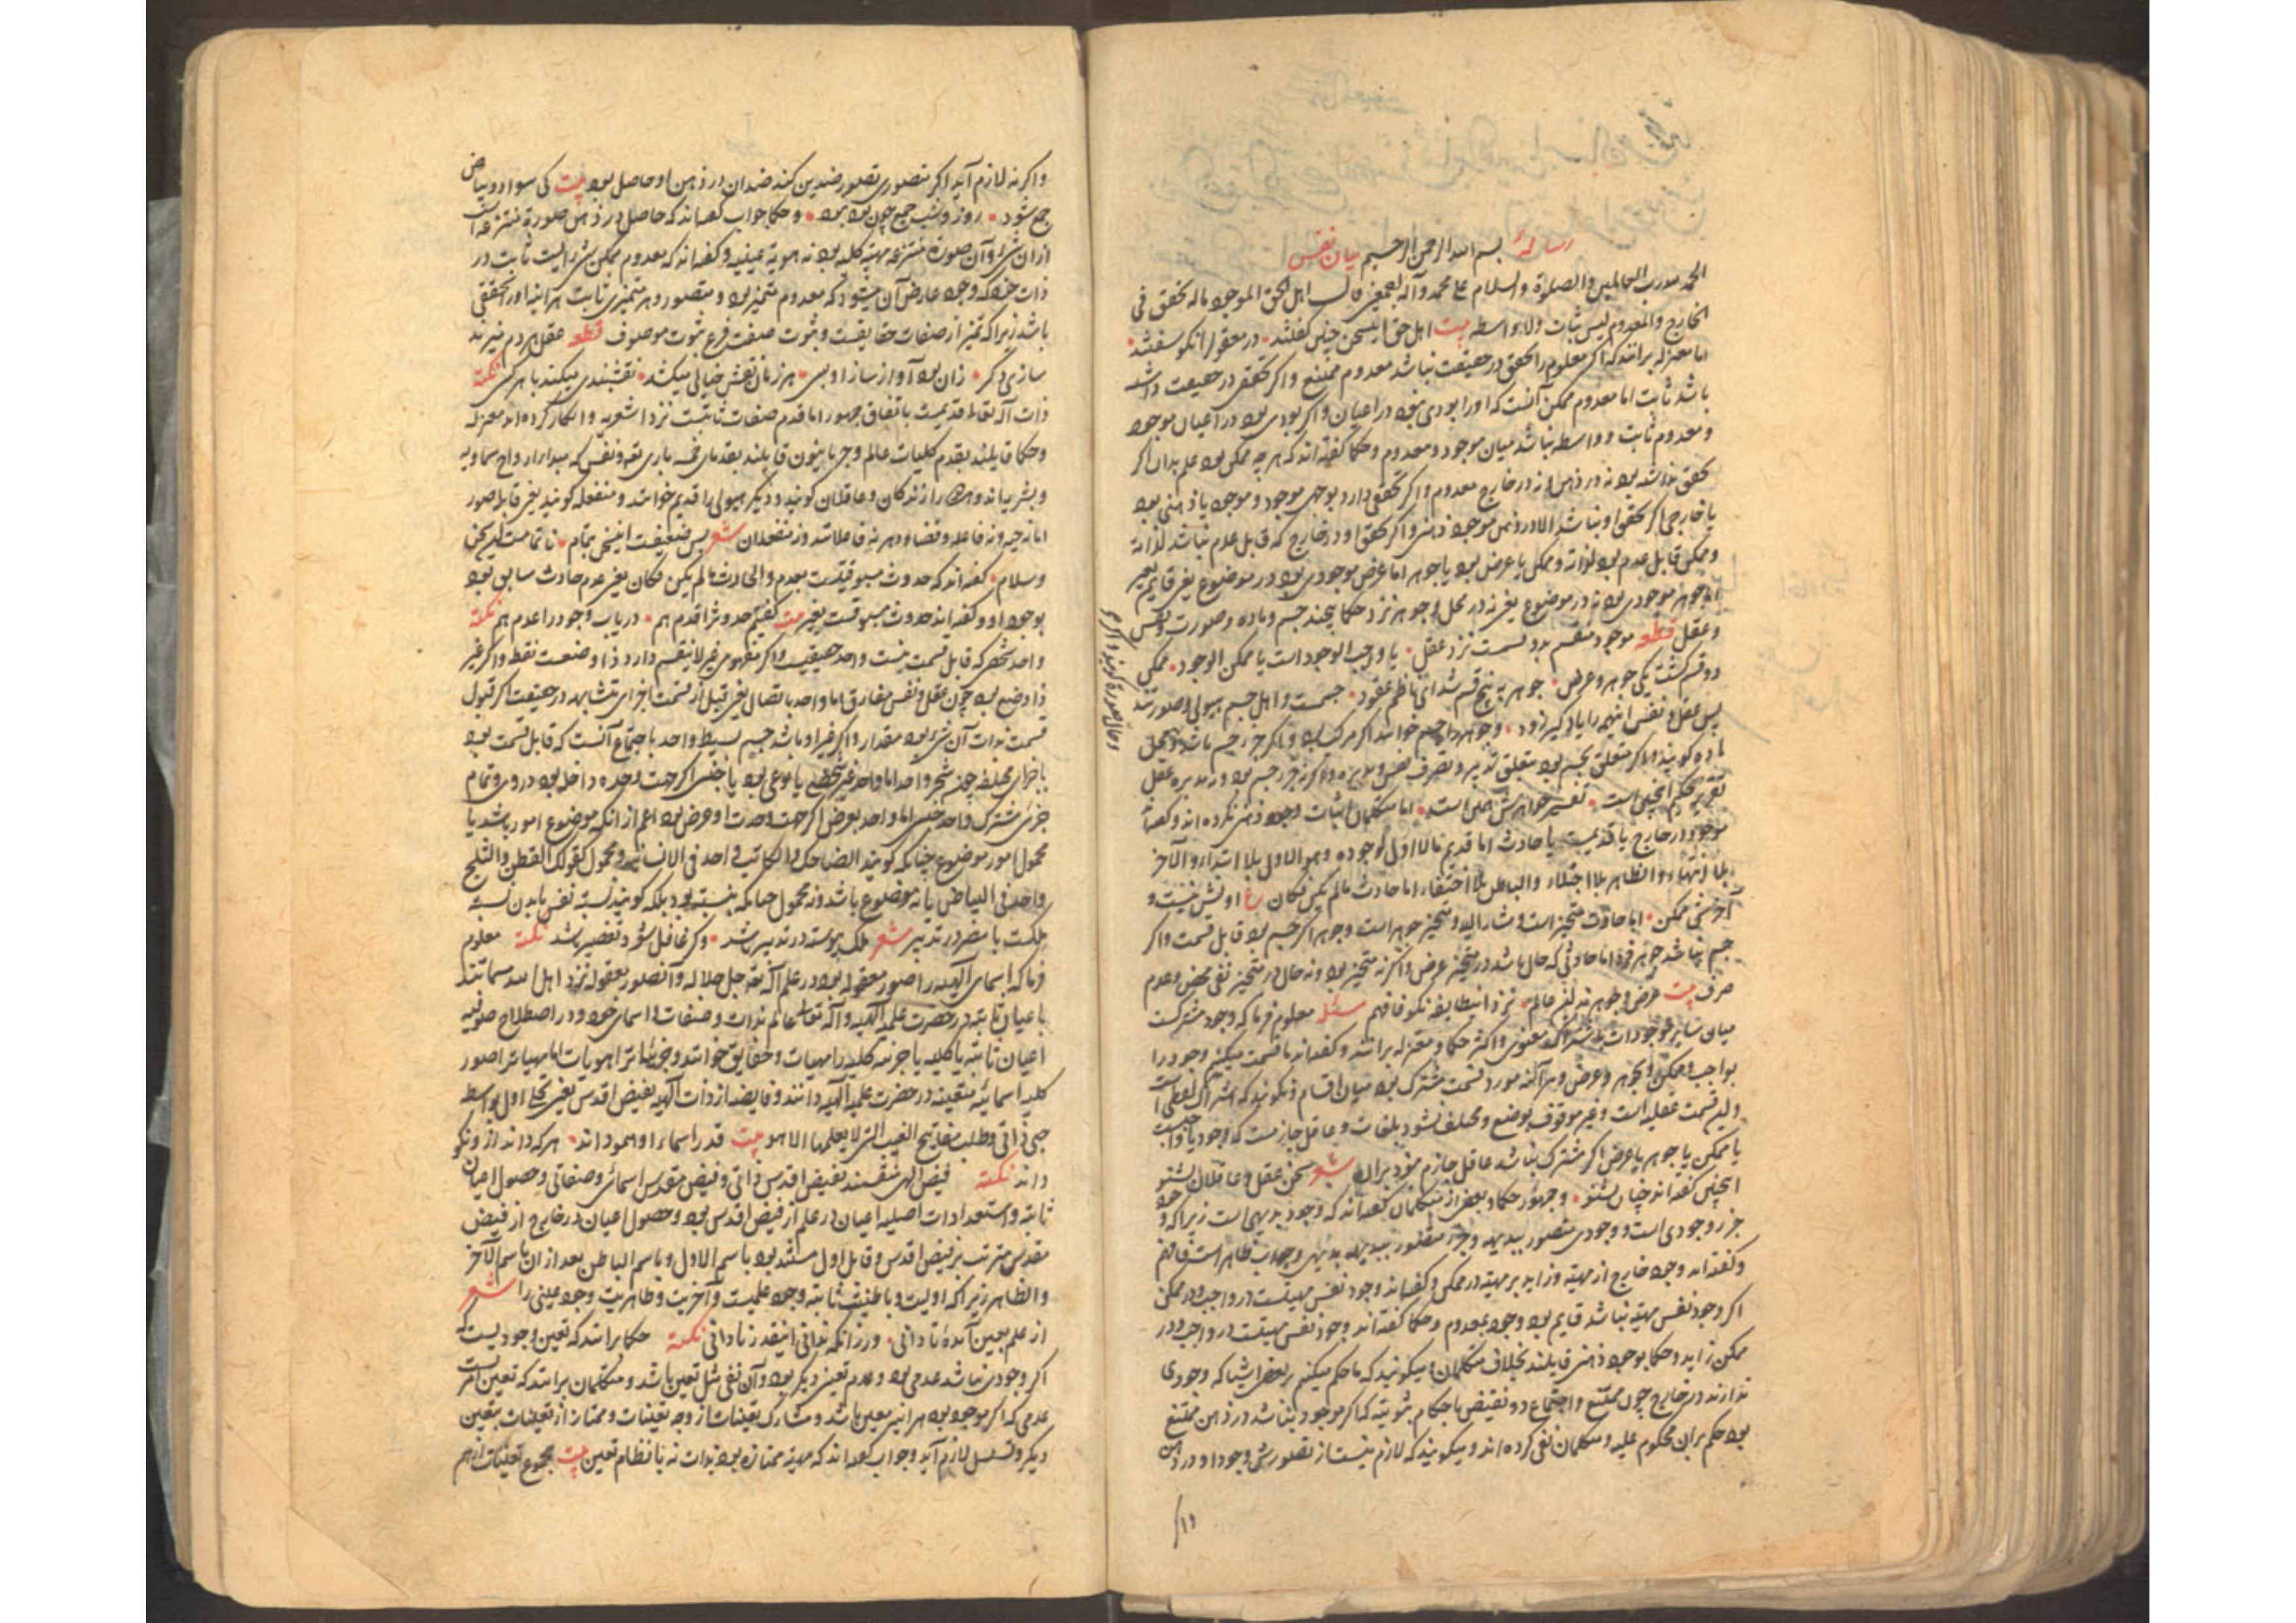 رساله بسم الله الرحمن الرحیم بیان نفس
الحمد لله رب العالمین والصلوة والسلام علی محمد وآله اجمعین قال اهل الحق الموجود ماله تحقق فی
الخارج والمعدوم لیس بثابت ولا واسطه بیت اهل حق این سخن چنین گفتند در معقول را نکو سفتند
اما معتزله برانند که اگر معلوم را تحقق در حقیقت نباشد معدوم ممتنع و اگر تحقق در حقیقت داشته
باشد ثابت اما معدوم ممکن آنست که او را بودی نبود در اعیان و اگر بودی بود در اعیان موجود
و معدوم ثابت و واسطه نباشد میان موجود و معدوم و حکما گفته اند که هر چه ممکن بود علم بدان اگر
تحقق نداشته بود نه در ذهن و نه در خارج معدوم و اگر تحقق دارد بوجهی موجود و موجود یا ذهنی بود
یا خارجی اگر تحقق او نباشد الا در ذهن موجود ذهنی و اگر تحقق او در خارج که قابل عدم نباشد لذاته
و ممکن قابل عدم بود لذاته و ممکن یا عرض بود یا جوهر اما عرض موجودی بود در موضوع یعنی قایم بغیر
اما جوهر موجودی بود نه در موضوع یعنی نه در محل و جوهر نزد حکما پنجند جسم و ماده و صورت و نفس
و عقل قطعه موجود منقسم بدو قسمست نزد عقل یا واجب الوجود است یا ممکن الوجود ممکن
دو قسم گشت یکی جوهر و عرض جوهر به پنج قسم شد ای ناظم عقود جسمست و اصل جسم هیولی و صورتند
پس عقل و نفس این همه را یاد گیر زود و جوهر را جسم خوانند اگر مرکب بود و اگر جزء جسم باشد و محل
ماده گویند و اگر متعلق بجسم بود بتعلق تدبیر و تصرف نفس و اگر نه جزء جسم بود و نه مدبره عقل
تقریر حکم اینچنین است تفسیر جواهرش همین است اما متکلمان اثبات وجود ذهنی نکرده اند و گفته اند
موجود در خارج یا قدیمست یا حادث اما قدیم ما لا اول لوجوده و هو الاول بلا ابتداء و الآخر
بلا انتهاء و الظاهر بلا اجتلاء و الباطن بلا اختفاء اما حادث ما لم یکن فکان اولیش نیست و
آخرش ممکن اما حادث متحیز است و مشار الیه و متحیز جوهر است و جوهر اگر جسم بود قابل قسمت و اگر
جسم نباشد جوهر فرد اما حادثی که حال باشد در متحیز عرض و اگر نه متحیز بود و نه حال در متحیز نفی محض و عدم
صرف بیت عرض و جوهر نزد این طایفه نکو فافهم مسئله معلوم فرما که وجود مشترکست
میان سایر موجودات باشتراک معنوی و اکثر حکما و معتزله برانند و گفته اند ما قسمت میکنیم وجود را
بواجب و ممکن و بجوهر و عرض و هر آینه مورد قسمت مشترک بود میان اقسام و نگویند که اشتراک لفظی است
و این قسمت عقلیه است و غیر موقوف بوضع و مختلف نشود بلغات و عاقل جازمست که وجود یا واجب
یا ممکن یا جوهر یا عرض اگر مشترک نباشد عاقل جازم نبود بران شعر سخن عقل و عاقلان بشنو
اینچنین گفته اند چنان بشنو و جمهور حکما و بعضی از متکلمان گفته اند که وجود بدیهی است زیرا که وجود
جزء وجودی است و وجودی متصور ببدیهه و جزء متصور ببدیهه بدیهی و جواب ظاهر است فافهم
و گفته اند وجود خارج از مهیة و زاید بر مهیته در ممکن و گفته اند وجود نفس مهیتست در واجب و در ممکن
اگر وجود نفس مهیة نباشد قایم بود وجود بمعدوم و حکما گفته اند وجود نفس مهیتست در واجب و در
ممکن زاید و حکما بوجود ذهنی قایلند بخلاف متکلمان و میگویند که ما حکم میکنیم بر بعضی اشیا که وجودی
ندارند در خارج چون ممتنع و اجتماع دو نقیض باحکام ثبوتیه که اگر موجود نباشد در ذهن ممتنع
بود حکم بران محکوم علیه و متکلمان نفی کرده اند و میگویند که لازم نیست از تصور شی وجود او در ذهن
وحال صورة گویند و اگر
واگر نه لازم آید اگر متصوری تصور ضدین کند ضدان در ذهن او حاصل بود بیت کی سواد و بیاض
جمع شود روز و شب جمع چون بود نبود و حکما جواب گفته اند که حاصل در ذهن صورة منتزعه است
از ان شی و آن صورة منتزعه مهیة کلیه بود نه هویة عینیه و گفته اند که معدوم ممکن شی ایست ثابت در
ذات خود که وجود عارض آن میشود که معدوم متمیز بود و متصور و هر متمیزی ثابت هر آینه او را تحققی
باشد زیرا که تمیز از صفات حقایقست و ثبوت صفت فرع ثبوت موصوف قطعه عقل هر دم میزند
سازی دگر زان بود آواز ساز او بسی هر زمان نقش خیالی میکشد نقشبندی میکند با هر کسی نکته
ذات اله تعالی قدیمست باتفاق جمهور اما قدم صفات ثابتست نزد اشعریه و انکار کرده اند معتزله
و حکما قایلند بقدم کلیات عالم و حرنانیون قایلند بقدمای خمسه باری تعالی و نفس که مبدا ارواح سماویه
و بشریه اند و هر دو را زندگان و عاقلان گویند و دیگر هیولی را قدیم خوانند و منفعله گویند یعنی قابل صور
اما نه حیه و نه فاعله و فضا و دهر نه فاعلانند و نه منفعلان شعر بس ضعیفست این سخن بتمام ناتمامست این سخن
و سلام گفته اند که حدوث مسبوقیتست بعدم و الحادث ما لم یکن فکان یعنی عدم حادث سابق بود
بوجود او و گفته اند حدوث مسبوقست بغیر بیت گفتیم حدوث را قدم هم دریاب وجود را عدم هم نکته
واحد شخصی که قابل قسمت نیست واحد حقیقیست و اگر مفهومی غیر لا ینقسم دارد ذا وضعست نقطه و اگر غیر
ذا وضع بود چون عقل و نفس مفارق اما واحد باتصال یعنی قبل از قسمت اجزای متشابه در حقیقت اگر قبول
قسمت بذات آن شی بود مقدار و اگر غیر او باشد جسم بسیط و واحد باجتماع آنست که قابل قسمت بود
باجزای مختلفه چون شجر واحد اما واحد غیر شخصی یا نوعی بود یا جنسی اگر جهت وحده داخل بود در وی و تمام
جزئی مشترک واحد جنسی اما واحد بعرض اگر جهت وحدت او عرض بود اعم از آنکه موضوع امور باشد یا
محمول امور موضوع چنانکه گویند الضاحک و الکاتب واحد فی الانسانیه و محمول کقولک القطن و الثلج
واحد فی البیاض یا نه موضوع باشد و نه محمول چنانکه نسبت بود بلکه گویند نسبة نفس با بدن نسبة
ملکست با مصر در تدبیر شعر ملک پیوسته در تدبیر باشد وگر غافل شود تقصیر باشد نکته معلوم
فرما که اسمای الهیه را صور معقوله بود در علم اله تعالی جل جلاله و آن صور معقوله نزد اهل الله مسمااتند
باعیان ثابته در حضرت علمیه الهیه و اله تعالی عالم بذات و صفات و اسمای خود و در اصطلاح صوفیه
اعیان ثابته یا کلیه یا جزئیه کلیه را مهیات و حقایق خوانند و جزئیات را هویات اما مهیات را صور
کلیه اسمائیه متعینه در حضرت علمیه الهیه دانند و فایضه از ذات الهیه بفیض اقدس یعنی تجلی اول بواسطه
حبی ذاتی و طلب مفاتیح الغیب التی لا یعلمها الا هو بیت قدر اسماء او همو داند هر که داند ازو نکو
داند نکته فیض الهی منقسمند بفیض اقدس ذاتی و فیض مقدس اسمائی و صفاتی و حصول اعیان
ثابته و استعدادات اصلیه اعیان در علم از فیض اقدس بود و حصول اعیان در خارج از فیض
مقدس مترتب بر فیض اقدس و قابل اول مستند بود باسم الاول و باسم الباطن بعد از ان باسم الآخر
و الظاهر زیرا که اولیت و باطنیت ثابته وجود علمیست و آخریت و ظاهریت وجود عینی را شعر
از علم بعین آمده تا دانی ورزانکه ندانی اینقدر نادانی نکته حکما برانند که تعین وجودیست که
اگر وجودی نباشد عدمی بود و عدم تعینی دیگر بود و آن نفی مثل تعین باشد و متکلمان برانند که تعین امریست
عدمی که اگر موجود بود هر آینه معین باشد و مشارک تعینات از وجه تعینات و ممتاز از تعینات بتعین
دیگر و تسلسل لازم آید و جواب گفته اند که مهیة ممتازه بود بذات نه بانضمام تعین بیت مجموع تعینات از هم